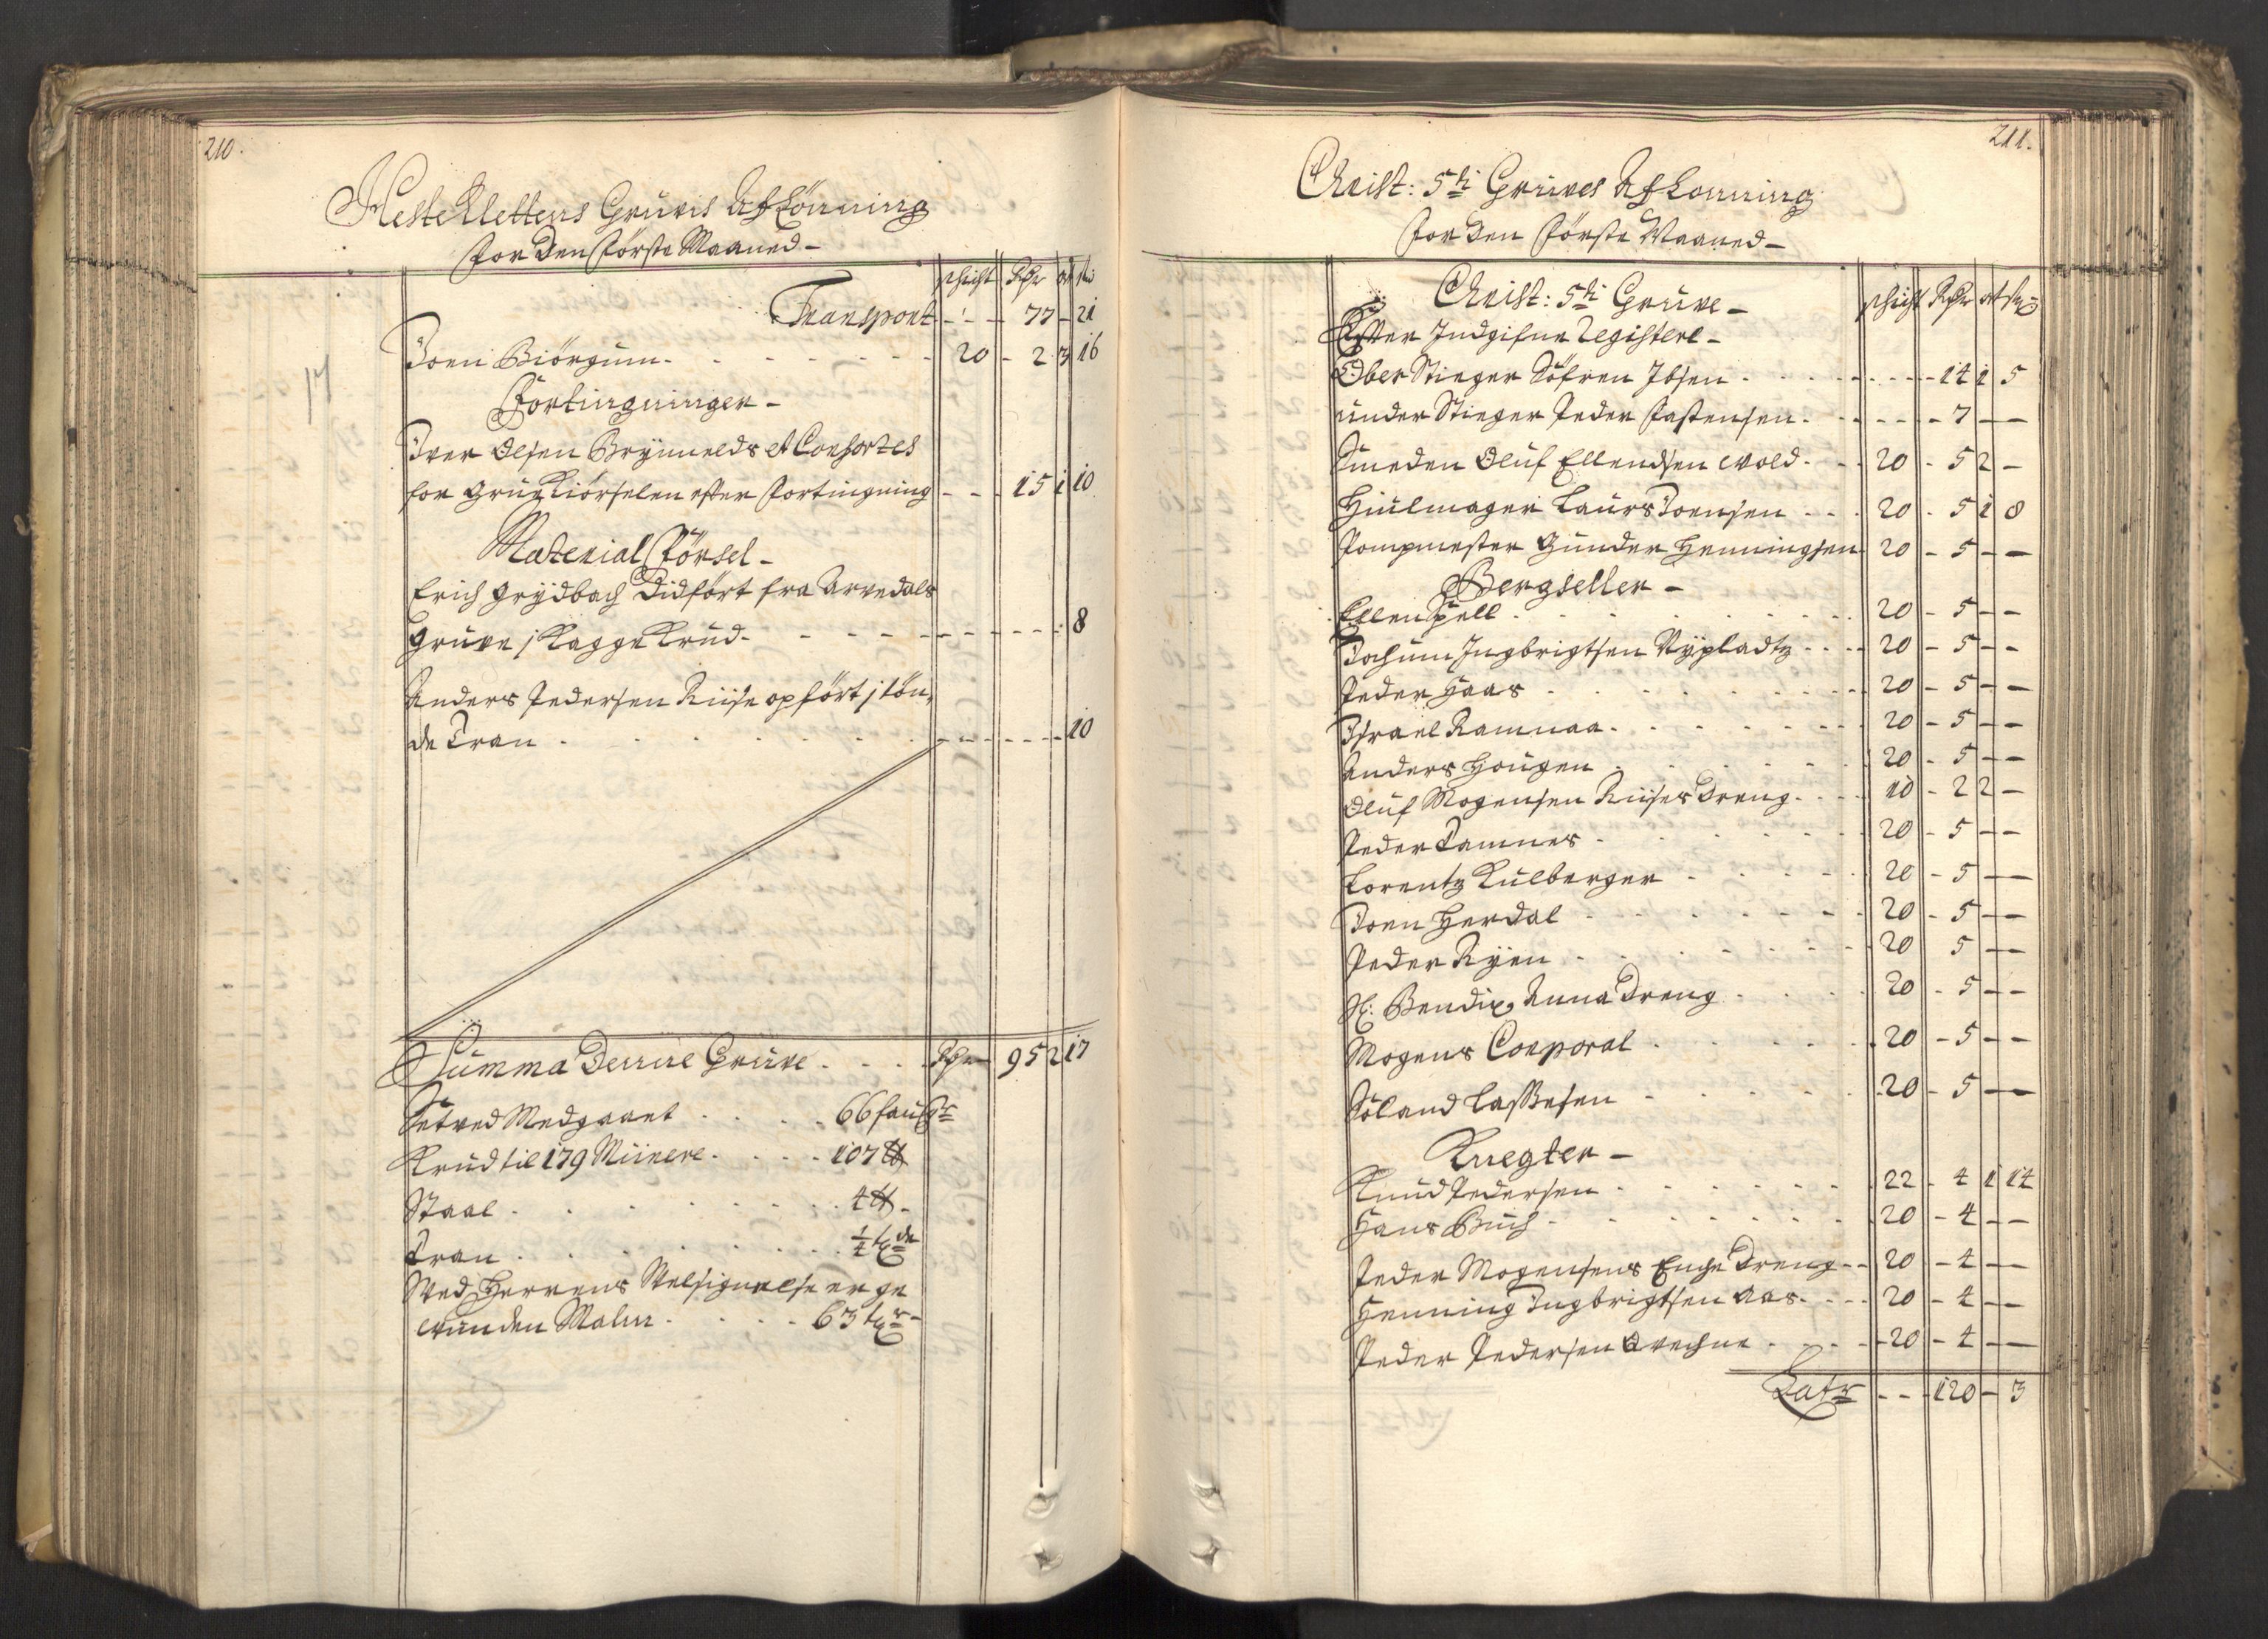 210.
HesteKlettens Gruves Aflönning
For den Förste Maaned -
schicht Rdr ort sk
Transport - - - 77 - 21
Joen Biörgum - - - 20 - 2 3 16
Fortingninger -
Iver Olsen Brynnelds et Consortes
for Grub Kiörselen efter Fortingning - - - 15 1 10
Material Försel -
Erich Grydbach didfört fra Arvedals
Gruve 1 Kagge Krud - - - 8
Anders Pedersen Riise opfört 1 tön,
de Tran - - - 10
Summa Denne Gruve - - - Rdr 95 2 17
Setved Medgaaet - - - 66 faufr
Krud til 179 Miinere - - - 107 ℔
Staal - - - 4 ℔ -
Tran - - - 1/4 tde
Ved Herrens Velsignelse er ge
wunden Malm - - - 63 tr -
211.
Christ: 5ti Gruves Aflonning
For den Förste Maaned -
Christ: 5ti Gruve -
schicht Rdr ort sk
Efter Indgifne Registere -
Ober Stieger Söfren Ibsen - - - 14 1 5
under Stieger Peder Pastensen - - - 7 - -
Smeden Oluf Ellendsen Wold - - 20 - 5 2 -
Hiulmager Laurs Joensen - - - 20 - 5 1 8
Pompmester Gunder Henningsen 20 - 5 - -
Bergseller -
Ellen Spell - - - 20 - 5 - -
Jochum Ingbrigtsen Nypladtz - - - 20 - 5 - -
Peder Haas - - - 20 - 5 - -
Israel Ramnaa - - - 20 - 5 - -
Anders Hougen - - - 20 - 5 - -
Oluf Mogensen Riises Dreng - - - 10 - 2 2 -
Peder Tamnes - - - 20 - 5 - -
Lorentz Kulberger - - - 20 - 5 - -
Joen Herdal - - - 20 - 5 - -
Peder Ryen - - - 20 5 - -
Sl: Bendix Anna Dreng - - - 20 - 5 - -
Mogens Corporal - - - 20 - 5 - -
Söland Lassesen - - - 20 - 5 - -
Knegter -
Knud Pedersen - - - 22 - 4 1 14
Hans Buch - - - 20 - 4 - -
Peder Mogensens Enche Dreng - - 20 - 4 - -
Henning Ingbrigtsen Aas - - - 20 - 4 - -
Peder Pedersen Qvechne - - - 20 - 4 - -
Latr - - - 120 - 3